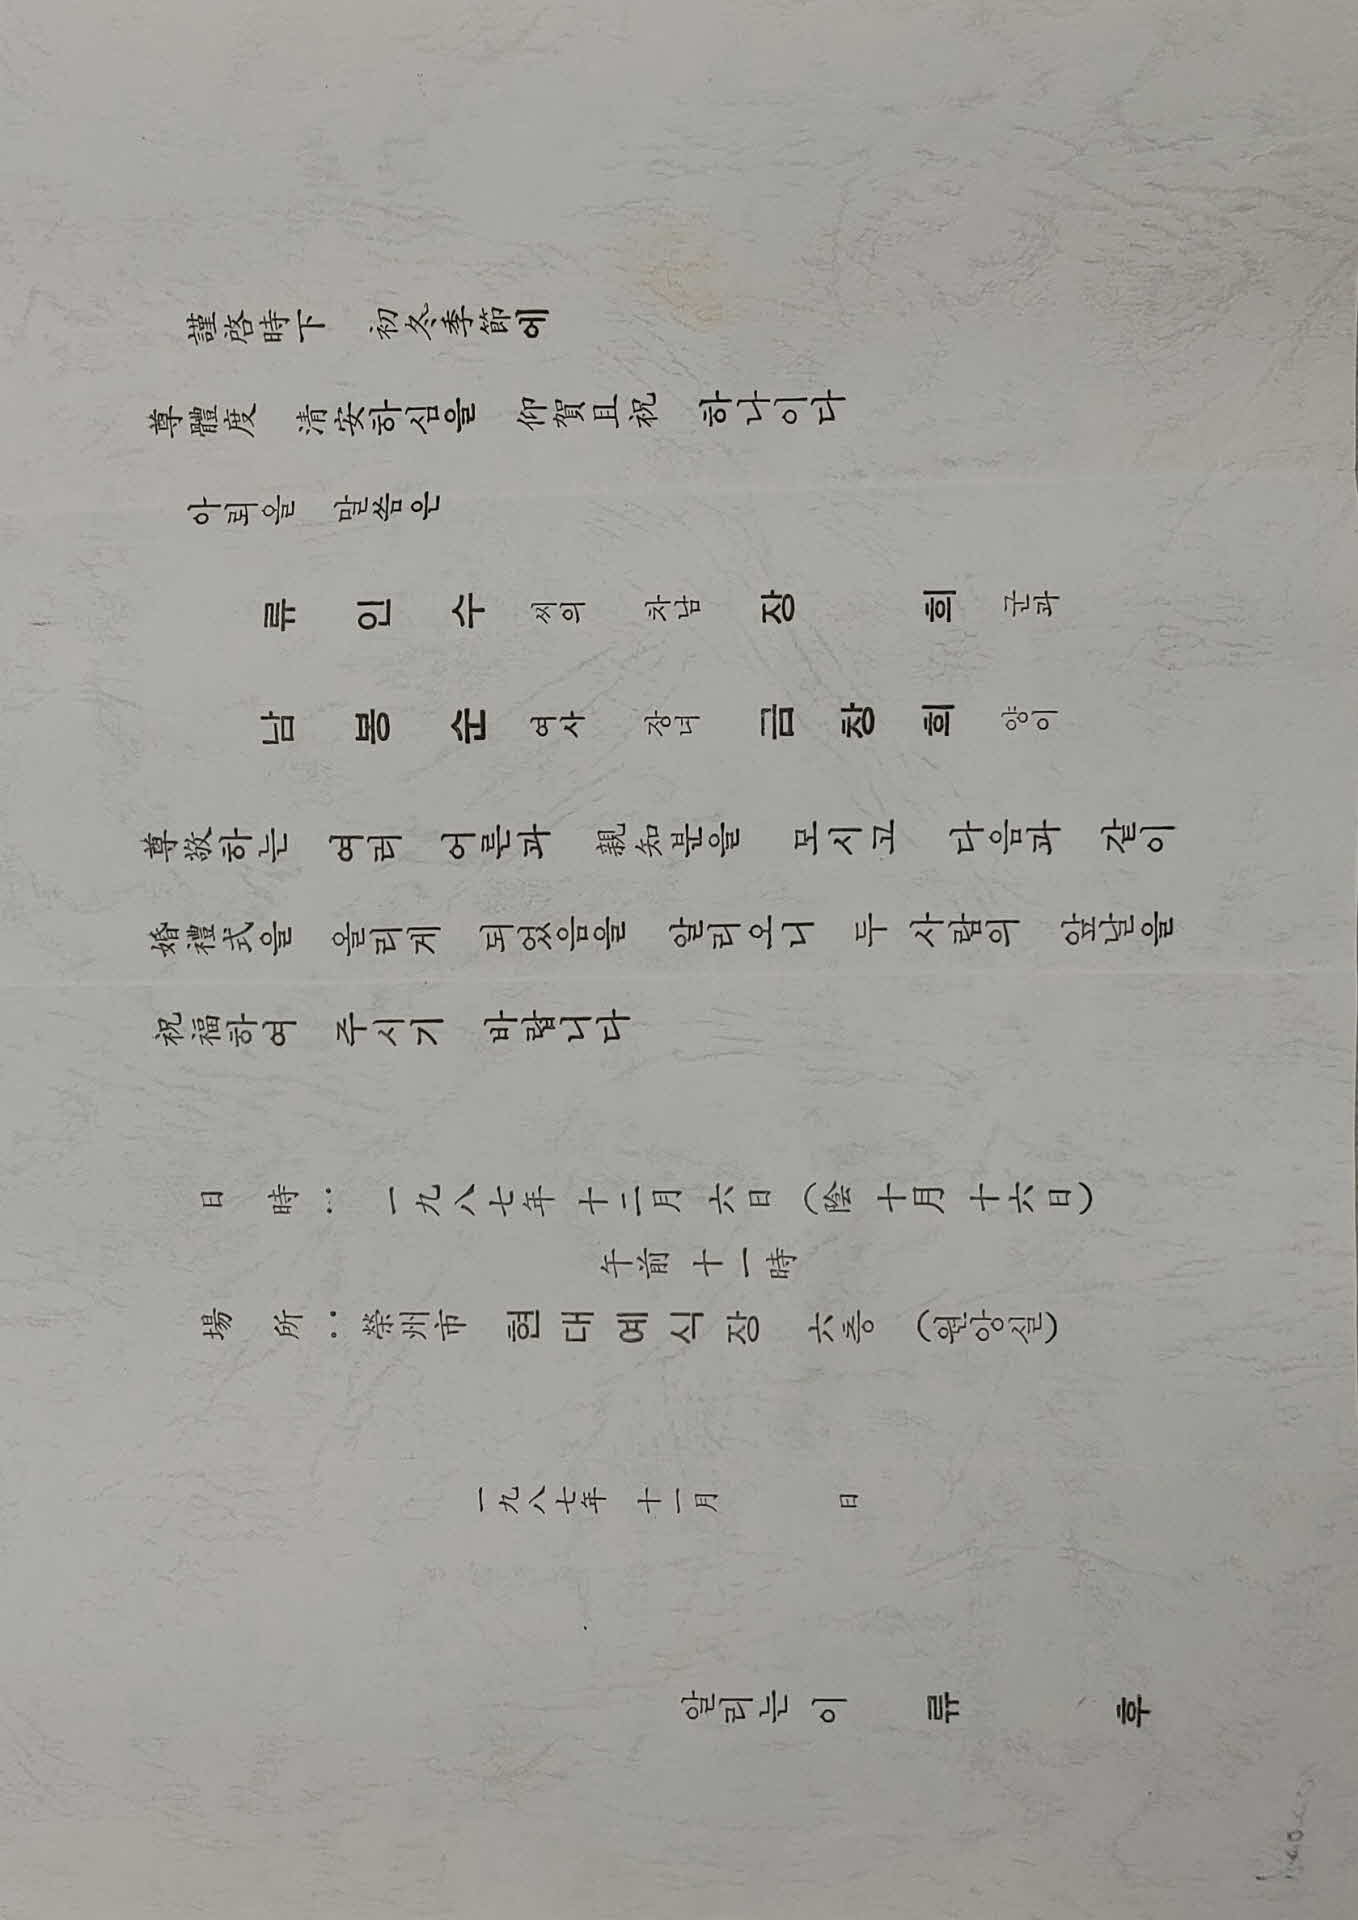 謹啓時下 初冬季節에
尊體度 清安하심을 仰賀且祝 하나이다
아뢰올 말씀은
류인수 씨의 차남 장희 군과
남봉순 여사 장녀 금창희 양이
尊敬하는 여러 어른과 親知분을 모시고 다음과 같이
婚禮式을 올리게 되었음을 알리오니 두 사람의 앞날을
祝福하여 주시기 바랍니다
日時: 一九八七年 十二月 六日 (陰 十月 十六日)
午前 十一時
場所: 榮州市 현대예식장 六층 (원앙실)
一九八七年 十一月 日
알리는 이 류 후